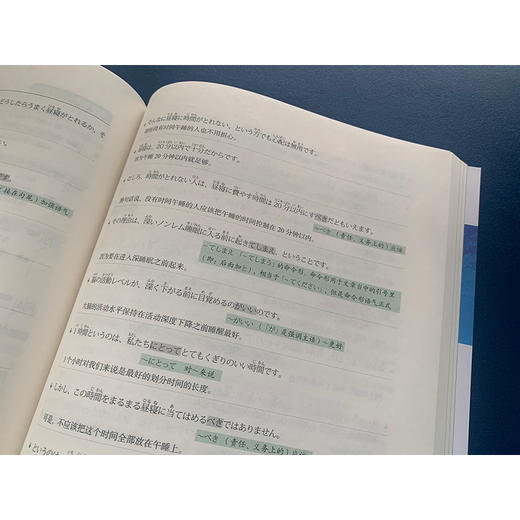 どうしたらうまく昼寝がとれるか、そ
(接在句尾)加强语气
そんなに昼寝に時間がとれない、という方でも心配は無用です。
那些没有时间午睡的人也不用担心。
昼寝は、20分以内で十分だからです。
因为午睡20分钟以内就足够。
むしろ、時間がとれない人は、昼寝に費やす時間は20分以内にすべきだともいえます。
换句话说,没有时间午睡的人应该把午睡的时间控制在20分钟以内。
~べき (责任、义务上的)应该
その理由は、深いノンレム睡眠に入る前に起きてしまえ、ということです。
~てしまえ(~てしまう)的命令形,命令形用于文章当中的引号里
(即:后面加と),相当于(~てください),但是命令形语气正式
因为要在进入深睡眠之前起来。
脳の活動レベルが、深く下がる前に目覚めるのがいいのです。
~がいい (「が」是强调主语)~更好
大脑的活动水平保持在活动深度下降之前睡醒最好。
1時間というのは、私たちにとってとてもくぎりのいい時間です。
~にとって 对~来说
1个小时对我们来说是最好的划分时间的长度。
しかし、この時間をまるまる昼寝に当てはめるべきではありません。
~べき (责任、义务上的)应该
可是,不应该把这个时间全部放在午睡上。
というのは、